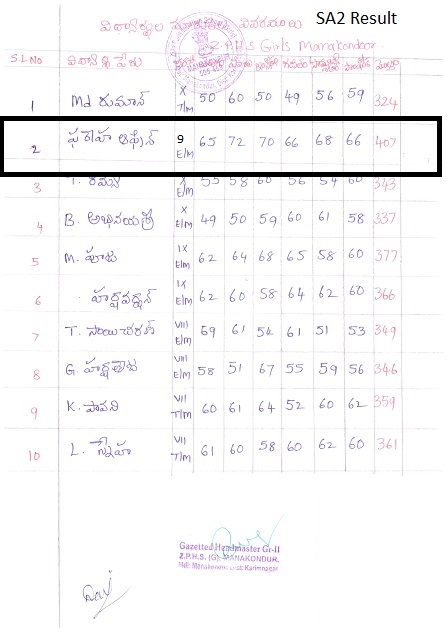 SA2 Result
విద్యార్థుల మార్కుల వివరములు
Z.P.H.S Girls Manakondoor
S.L.No విద్యార్థి పేరు
1 Md రుమాన్ X T/M 50 60 50 49 56 59 324
2 ఫరాహ ఆఫ్రీన్ 9 E/M 65 72 70 66 68 66 407
3 T. రమ్య X E/M 55 58 60 56 54 60 343
4 B. అభినయశ్రీ X E/M 49 50 59 60 61 58 337
5 M. పూజ IX E/M 62 64 68 65 58 60 377
6 హర్షవర్ధన్ IX E/M 62 60 58 64 62 60 366
7 T. సాయిచరణ్ VIII E/M 59 61 54 61 51 53 349
8 G. హర్షిత VIII E/M 58 51 67 55 59 56 346
9 K. పావని VII T/M 60 61 64 52 60 62 359
10 L. స్నేహ VII T/M 61 60 58 60 62 60 361
Gazetted Headmaster Gr-II
Z.P.H.S. (G). MANAKONDUR,
Mdl: Manakondur, Dist: Karimnagar